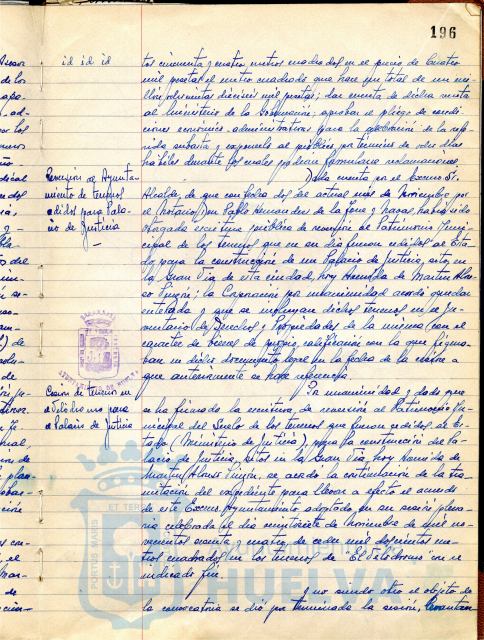 196
id id id
tos cincuenta y cuatro metros cuadrados en el precio de cuatro
mil pesetas el metro cuadrado que hace un total de un mi-
llón doscientas dieciseis mil pesetas; dar cuenta de dicha venta
al Ministerio de la Gobernación; aprobar el pliego de condi-
ciones económico-administrativas para la celebración de la refe-
rida subasta y exponerlo al público por término de ocho días
hábiles durante los cuales podrán formularse reclamaciones.
Reversión al Ayunta-
miento de terrenos
cedidos para Pala-
cio de Justicia
Dada cuenta por el Excmo Sr.
Alcalde, de que con fecha dos del actual mes de Noviembre por
el Notario Don Pablo Hernandez de la Torre y Navas, había sido
otorgada escritura pública de reversión al Patrimonio Muni-
cipal de los terrenos que en su día fueron cedidos al Esta-
do para la construcción de un Palacio de Justicia, sito en
la Gran Vía de esta ciudad, hoy Avenida de Martín Alon-
so Pinzón; la Corporación por unanimidad acordó quedar
enterada y que se incluyan dichos terrenos en el In-
ventario de Derechos y Propiedades de la misma con el
carácter de bienes de propio, calificación con la que figura-
ban en dicho documento legal en la fecha de la cesión a
que anteriormente se hace referencia.
AYUNTAMIENTO DE HUELVA
Cesión de terreno en
el Velódromo para
el Palacio de Justicia
Por unanimidad y dado que
se ha firmado la escritura, de reversión al Patrimonio Mu-
nicipal del Suelo de los terrenos que fueron cedidos al Es-
tado (Ministerio de Justicia), para la construcción del Pa-
lacio de Justicia, sitos en la Gran Vía, hoy Avenida de
Martín Alonso Pinzón, se acordó la continuación de la tra-
mitación del expediente para llevar a efecto el acuerdo
de este Excmo. Ayuntamiento adoptado en su sesión plena-
ria celebrada el día de Noviembre de mil no-
vecientos sesenta y cuatro, de ceder mil doscientos me-
tros cuadrados en los terrenos de "El Velódromo" con el
indicado fin.
y no siendo otro el objeto de
la convocatoria se dio por terminada la sesión, levantán-
PORTUS MARIS ET TERRAE
HUELVA